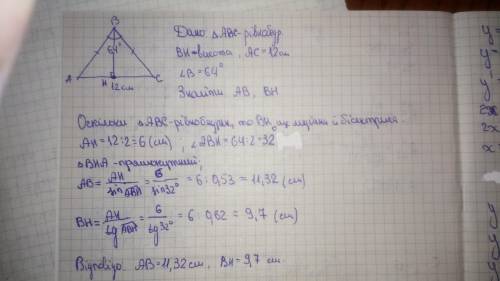 B
64°
A
H
C
12см
Дано △ABC-рівнобедр.
BH=висота, AC=12см
∠B=64°
Знайти AB, BH
Оскільки △ABC-рівнобедрен., то BH ще медіана й бісектриса.
AH=12:2=6(см), ∠ABH=64:2=32
△BHA-прямокутний;
AB= AH/sin ABH = 6/sin32° = 6:0,53 = 11,32 (см)
BH= AH/tg ABH = 6/tg32° = 6:0,62 = 9,7 (см)
Відповідь: AB=11,32см, BH=9,7 см.
y
y
y
2x
2x
x=
y
y
y